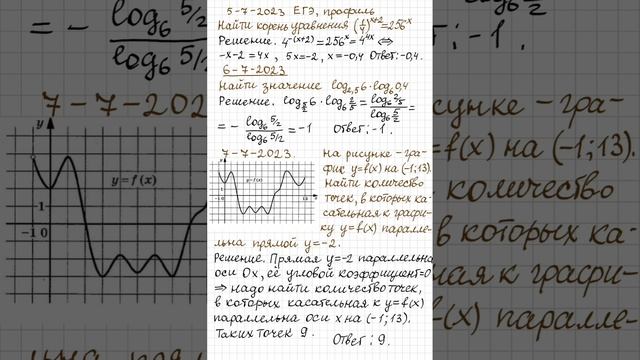 5-7-2023 ЕГЭ, профиль
Найти корень уравнения (1/4)^(x+2)=256^x
Решение. 4^-(x+2)=256^x=4^4x ⇔
-x-2=4x, 5x=-2, x=-0,4 Ответ:-0,4.
6-7-2023
Найти значение log₂,₅6·log₆0,4
Решение. log_5/2 6·log₆ 2/5 = log₆ 2/5 / log₆ 5/2 =
= - log₆ 5/2 / log₆ 5/2 = -1 Ответ: -1.
7-7-2023.
На рисунке - гра-
фик y=f(x) на (-1;13).
Найти количество
точек, в которых ка-
сательная к графи-
ку y=f(x) паралле-
льна прямой y=-2.
y
y=f(x)
1
-1 0
Решение. Прямая y=-2 параллельна
оси Ox, её угловой коэффициент=0
⇒ надо найти количество точек,
в которых касательная к y=f(x)
параллельна оси x на (-1;13).
Таких точек 9. Ответ: 9.
= - log₆ 5/2 / log₆ 5/2
7-7-202
y
y=f(x)
1
-1 0
т: -1.
сунке - гра-
=f(x) на (-1;13).
количество
, в которых ка-
ная к графи-
f(x) паралле-